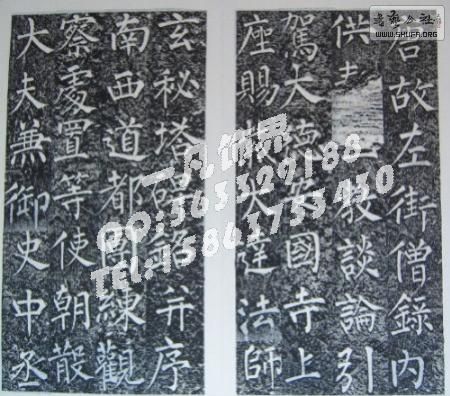 唐故左街僧錄內
供奉三教談論引
駕大德安國寺上
座賜紫大達法師
玄秘塔碑銘并序
南西道都團練觀
察處置等使朝散
大夫兼御史中丞
一凡饰界
QQ:363329188
TEL:
書藝公社
WWW.SHUFA.ORG